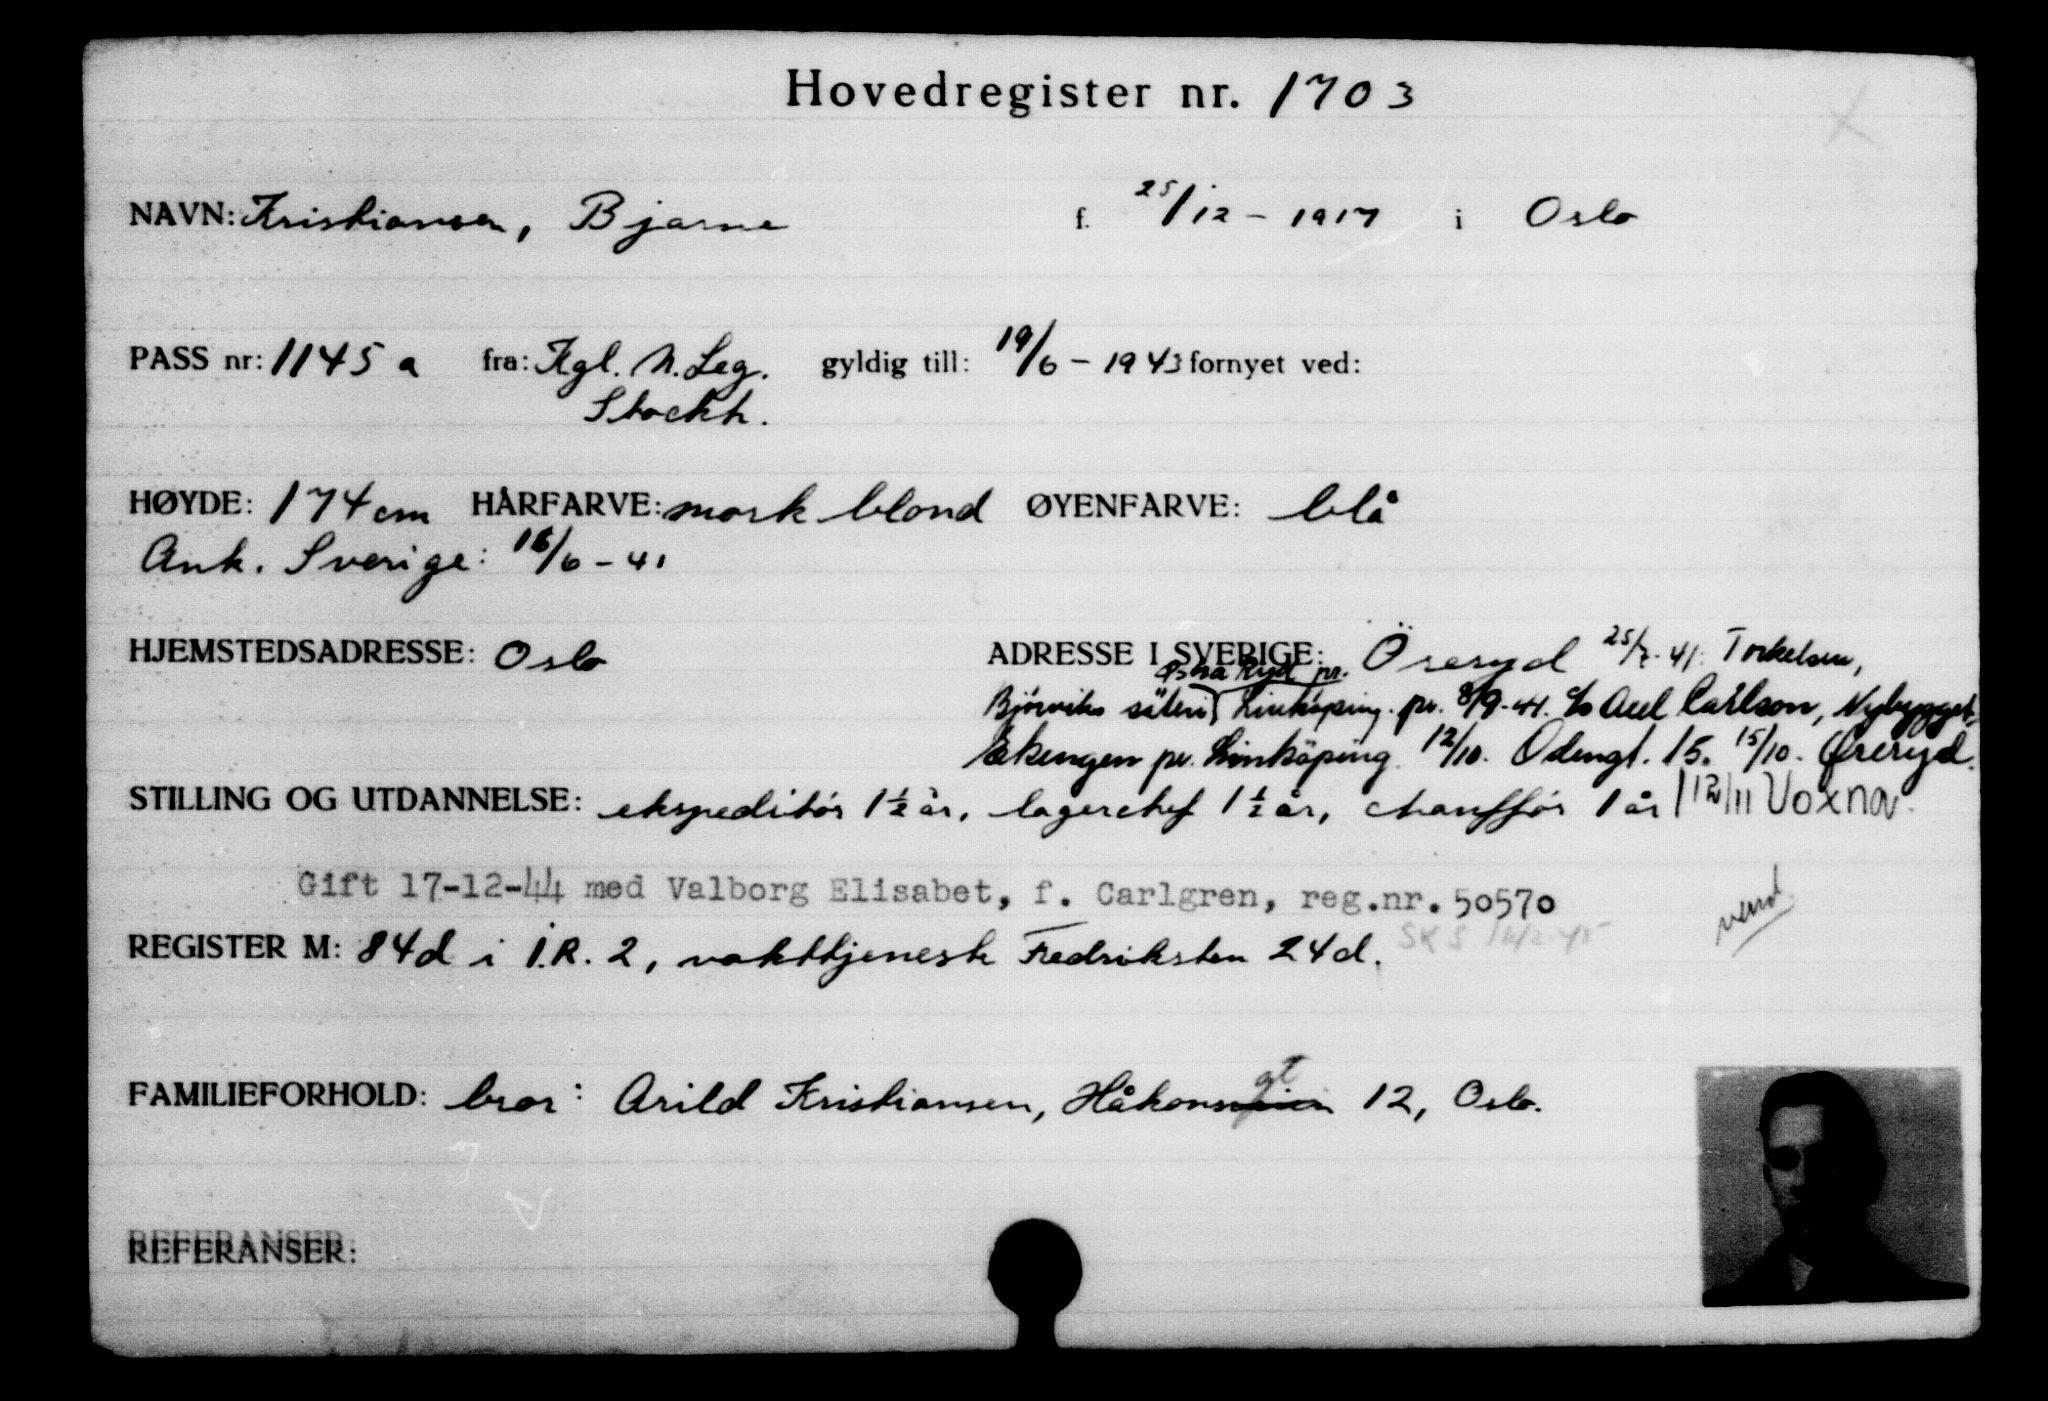 Hovedregister nr. 1703
NAVN: Kristiansen, Bjarne f. 25/12 - 1917 i Oslo
PASS nr: 1145 a fra: Kgl. N. Leg. gyldig till: 19/6 - 1943 fornyet ved:
Stockh.
HØYDE: 174 cm HÅRFARVE: mørk blond ØYENFARVE: blå
Ank. Sverige: 18/6 - 41
HJEMSTEDSADRESSE: Oslo ADRESSE I SVERIGE: Öreryd 25/7-41: Torkelsen,
Østra Ryd pr.
Björviks säteri Linköping. pr. 8/9-41. c/o Axel Carlson, Nybygget,
Ekengen pr. Linköping. 12/10. Odengt. 15. 15/10. Øreryd.
STILLING OG UTDANNELSE: ekspeditør 1 1/2 år, lagerchef 1 1/2 år, chauffør 1 år 12/11 Voxna.
Gift 17-12-44 med Valborg Elisabet, f. Carlgren, reg.nr. 50570
vend
REGISTER M: 84d i I.R. 2, vakttjeneste Fredriksten 24d.
FAMILIEFORHOLD: bror: Arild Kristiansen, Håkonsgt 12, Oslo.
REFERANSER: